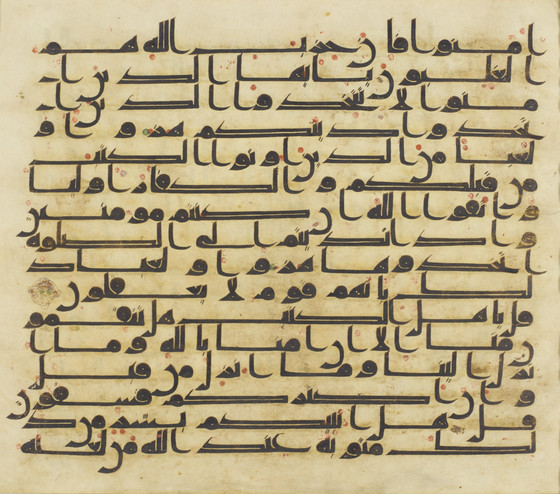 امنوا فان حزب الله هم
الغلبون يايها الذين ا
منوا لا تتخذوا الذين ا
تخذوا دينكم هزوا و
لعبا من الذين اوتوا الكتب
من قبلكم والكفار اوليا
واتقوا الله ان كنتم مومنين
واذا ناديتم الى الصلوه
اتخذوها هزوا ولعبا ذ
لك بانهم قوم لا يعقلون
قل ياهل الكتب هل تنقمو
ن منا الا ان امنا بالله وما ا
نزل الينا وما انزل من قبل
وان اكثركم فسقون
قل هل انبيكم بشر من ذ
لك مثوبه عند الله من لعنه